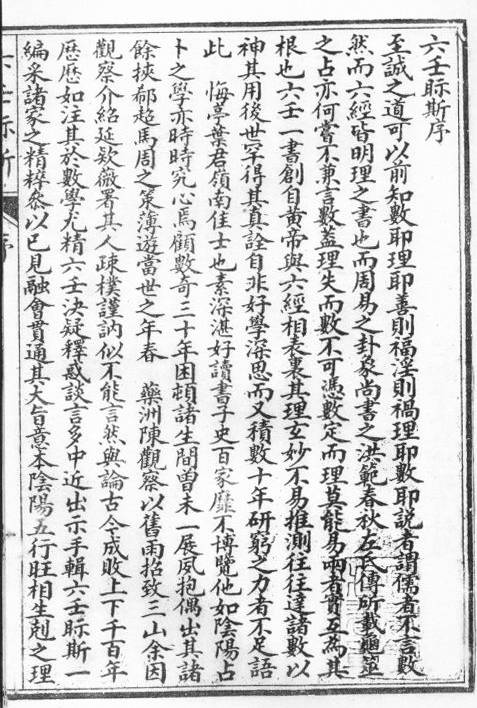 六壬眎斯序
至誠之道可以前知數耶理耶善則福淫則禍理耶數耶説者謂儒者不言數
然而六經皆明理之書也而周易之卦象尚書之洪範春秋左氏傳所載龜筮
之占亦何嘗不兼言數蓋理失而數不可憑數定而理莫能易兩者實互為其
根也六壬一書創自黄帝與六經相表裏其理玄妙不易推測往往達諸數以
神其用後世罕得其真詮自非好學深思而又積數十年研窮之力者不足語
此　悔亭葉君嶺南佳士也素深湛好讀書子史百家靡不博覽他如陰陽占
卜之學亦時時究心焉顧數奇三十年困頓諸生間曽未一展夙抱偶出其諸
餘挾郗超馬周之策薄遊當世之年春　藥洲陳觀察以舊雨招致三山余因
觀察介紹延欵薇署其人疎樸謹訥似不能言然與論古今成敗上下千百年
歴歴如注其於數學尤精六壬決疑釋惑談言多中近出示手輯六壬眎斯一
編采諸家之精粹叅以已見融會貫通其大旨意本陰陽五行旺相生剋之理
六壬眎斯　序